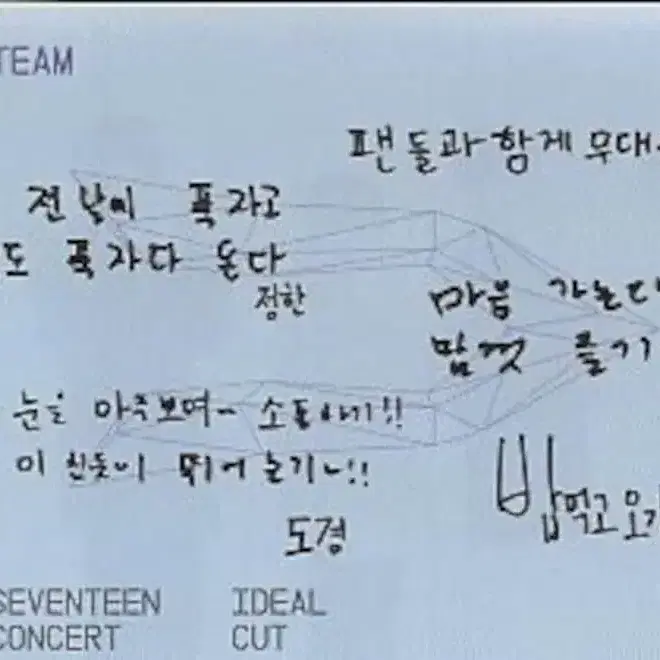 TEAM
팬들과 함께 무대
전날에 푹 자고
도 푹 자다 온다
정한
마음 가는대
맘껏 즐기
눈을 마주보며~ 소통하기!!
이 친듯이 뛰어 놀기~!!
밥먹고 오기
도경
SEVENTEEN IDEAL
CONCERT CUT